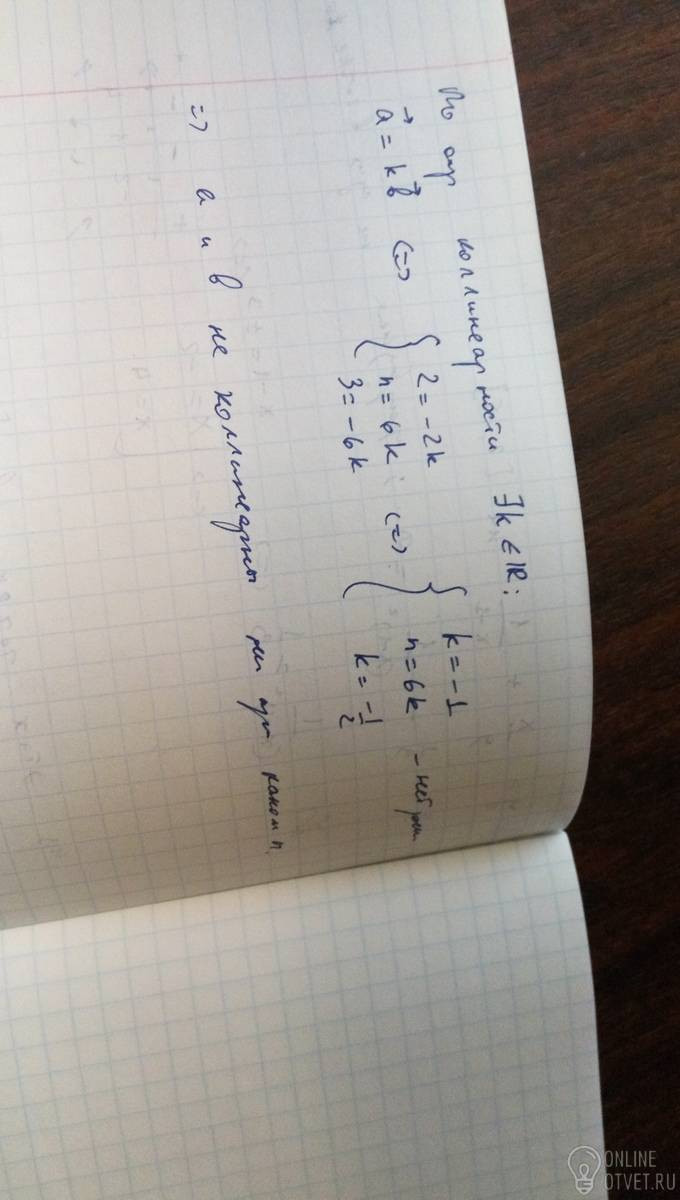 По опр коллинеарности ∃k ∈ ℝ:
a⃗ = k b⃗ <=> { 2 = -2k <=> { k = -1
n = 6k n = 6k - нет реш
3 = -6k k = -1/2
=> a и b не коллинеарны ни при каком n.
ONLINE
OTVET.RU